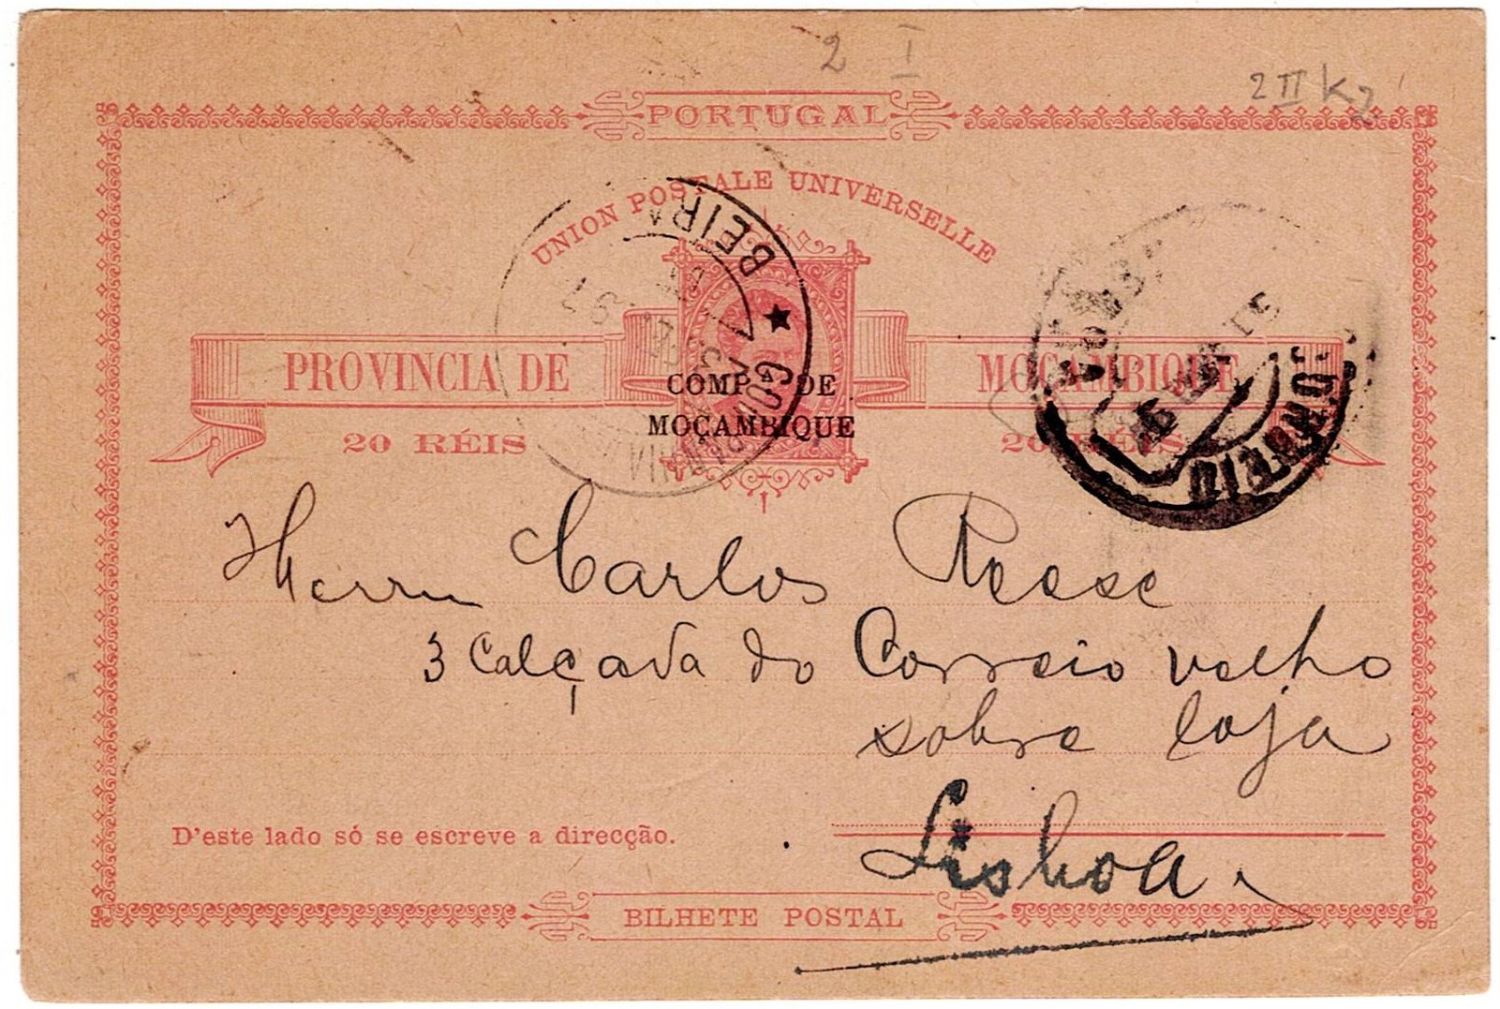 2 I
2 II K 2
PORTUGAL
UNION POSTALE UNIVERSELLE
BEIRA
97
PROVINCIA DE MOÇAMBIQUE
COMPA. DE
MOÇAMBIQUE
20 RÉIS 20 RÉIS
Herrn Carlos Reese
3 Calçada do Correio velho
sobre loja
Lisboa.
D'este lado só se escreve a direcção.
BILHETE POSTAL